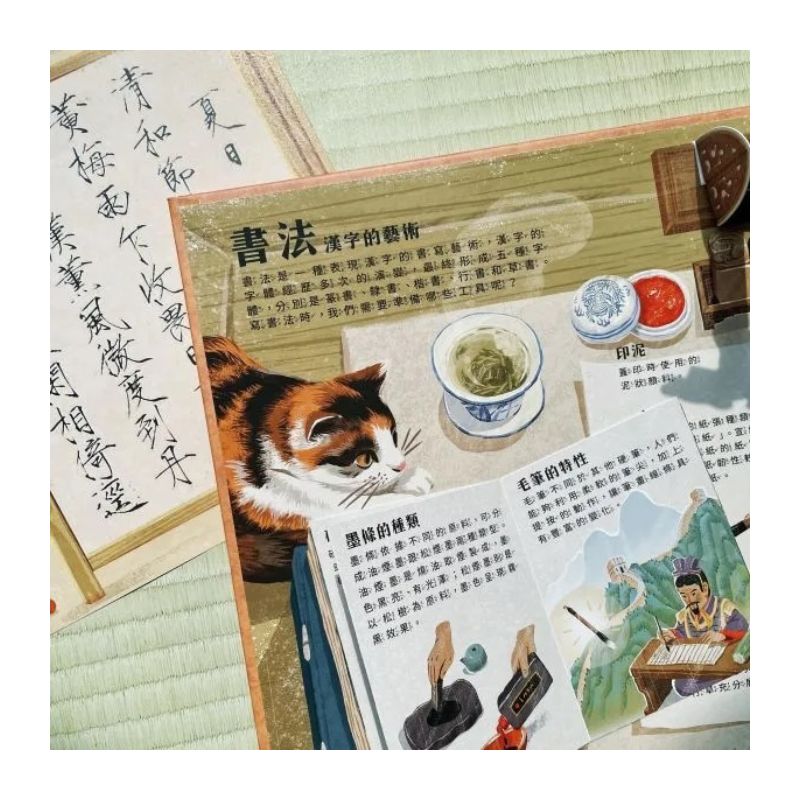 夏日
清和節
黃梅雨乍收畏日
薰風微度到丹
相倚邐
書法 漢字的藝術
書法是一種表現漢字的書寫藝術，漢字的
字體經歷多次的演變，最終形成五種字
體，分別是篆書、隸書、楷書、行書和草書。
寫書法時，我們需要準備哪些工具呢？
印泥
蓋印時使用的
泥狀顏料。
毛筆的特性
毛筆不同於其他硬筆，人們
能夠利用柔軟的筆尖，加上
提按的動作，讓筆畫線條具
有豐富的變化。
墨條的種類
墨條依據不同的原料，可分
成油煙墨跟松煙墨兩種類型。
油煙墨是燒油取煙製成，墨
色黑亮、有光澤；松煙墨則是
以松樹為原料，墨色呈現霧
黑效果。
紙張種類
紙」。宣
的紙
韌性較
紙。
行草充分展